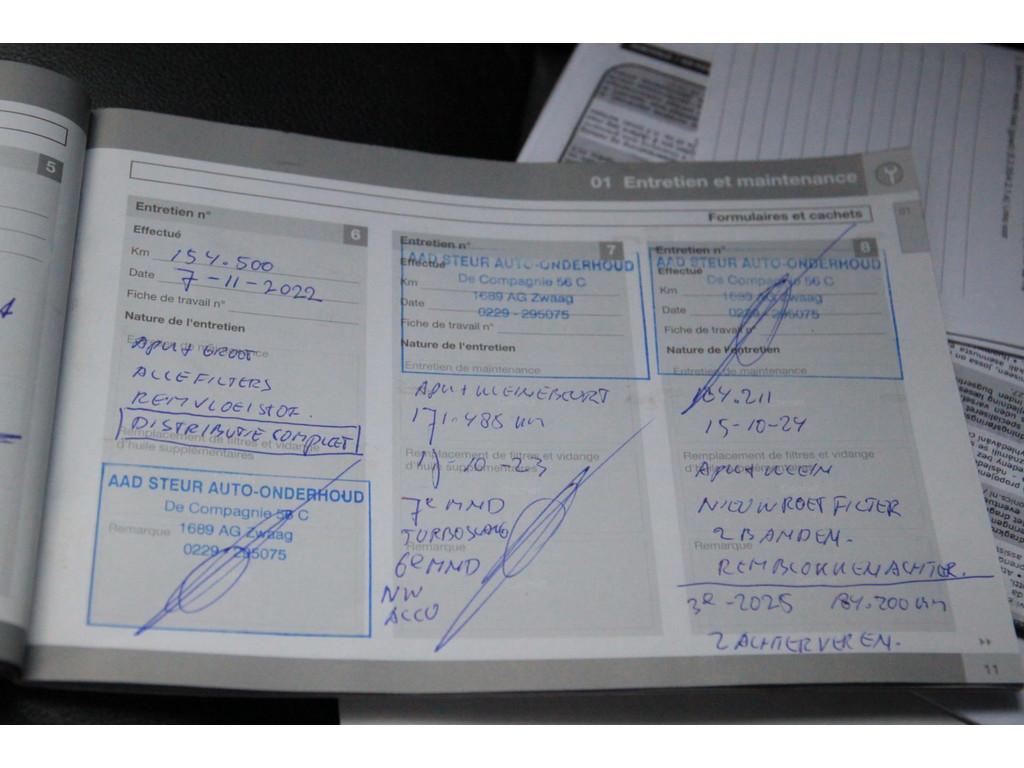 5
01 Entretien et maintenance
Formulaires et cachets
Entretien n° 6
Effectué
Km 154.500
Date 7-11-2022
Fiche de travail n°
Nature de l'entretien
Entretien de maintenance
APK + GROOT
ALLE FILTERS
REMVLOEISTOF.
DISTRIBUTIE COMPLEET
Remplacement de filtres et vidange
d'huile supplémentaires
AAD STEUR AUTO-ONDERHOUD
De Compagnie 56 C
Remarque 1689 AG Zwaag
0229 - 295075
Entretien n° 7
AAD STEUR AUTO-ONDERHOUD
Effectué
De Compagnie 56 C
Km
1689 AG Zwaag
Date
0229 - 295075
Fiche de travail n°
Nature de l'entretien
Entretien de maintenance
APK + KLEINE BEURT
171.485 km
Remplacement de filtres et vidange
d'huile supplémentaires
10-23
7e MND
TURBOSLANG
Remarque
6e MND
NW
ACCU
Entretien n° 8
AAD STEUR AUTO-ONDERHOUD
Effectué
De Compagnie 56 C
Km
1689 AG Zwaag
Date
0229 - 295075
Fiche de travail n°
Nature de l'entretien
Entretien de maintenance
15-10-24
Remplacement de filtres et vidange
d'huile supplémentaires
APK + KLEIN
NIEUW ROETFILTER
2 BANDEN.
Remarque
REMBLOKKEN ACHTER.
3e-2025 184.200 km
2 ACHTERVEREN.
11